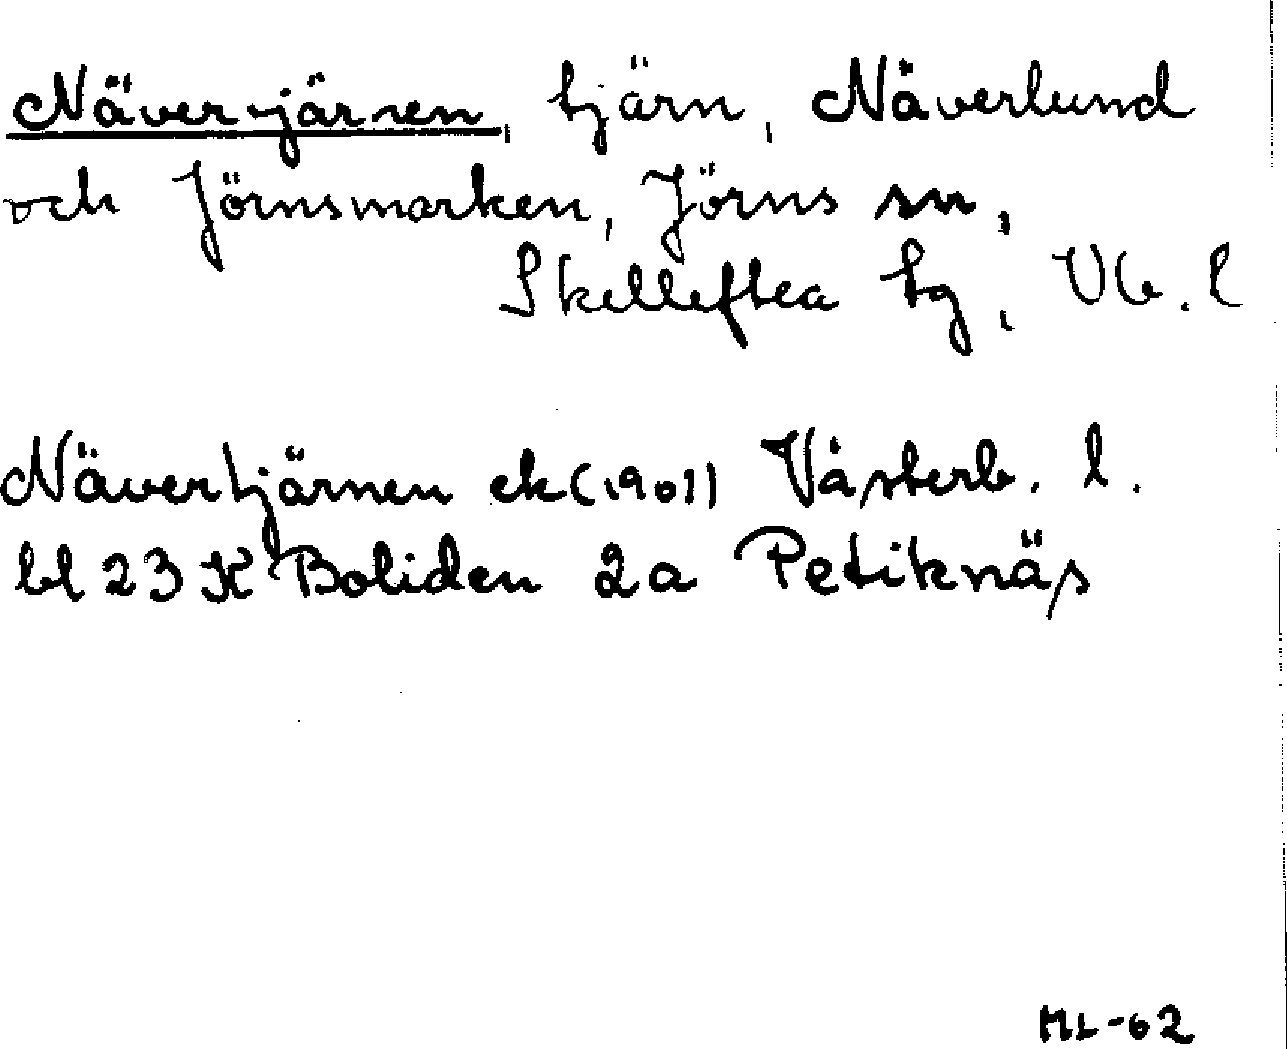 Nävertjärnen, tjärn, Näverlund
och Jörnsmarken, Jörns sn,
Skelleftea tg, Vb. l
Nävertjärnen ek (1961) Västerb. l.
bl 23 K Boliden 2a Petiknäs
ML-62